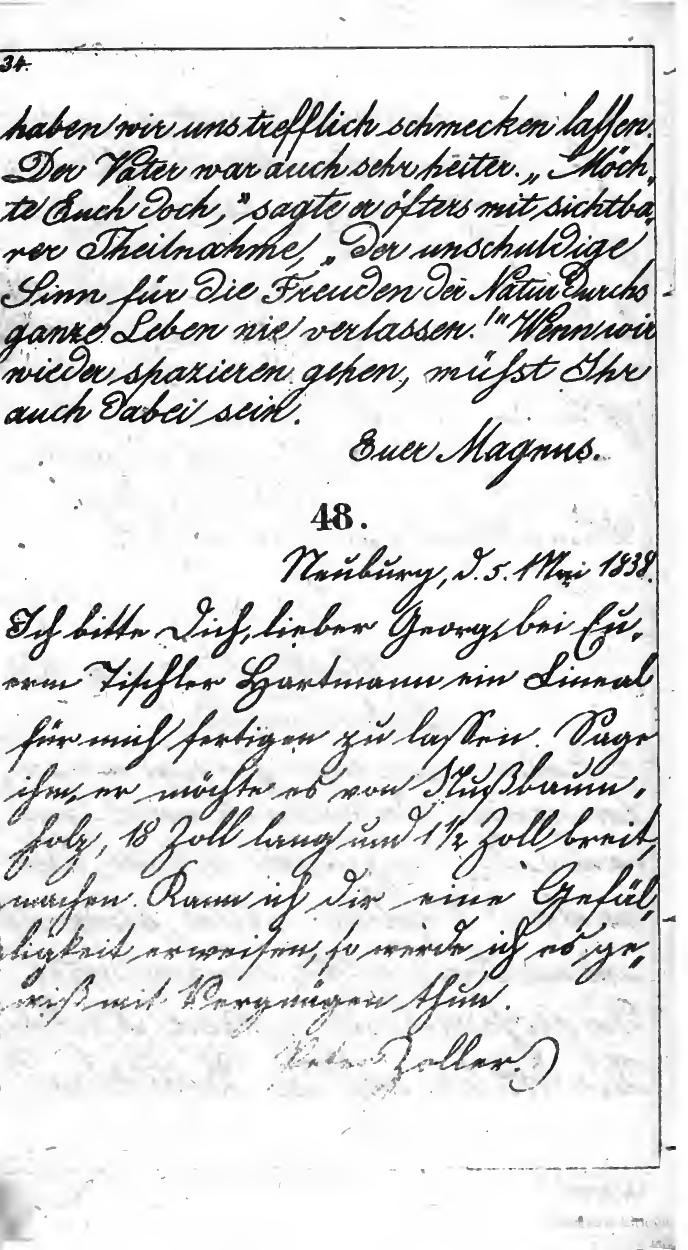 34.
haben wir uns trefflich schmecken lassen.
Der Vater war auch sehr heiter. „Möch„
te Euch doch,” sagte er öfters mit sichtba„
rer Theilnahme, „der unschuldige
Sinn für die Freuden der Natur durchs
ganze Leben nie verlassen!” Wenn wir
wieder spazieren gehen, müßt Ihr
auch dabei sein.
Euer Magnus.
48.
Neuburg, d. 5. Mai 1838.
Ich bitte Dich, lieber Georg, bei Eu„
erm Tischler Hartmann ein Lineal
für mich fertigen zu lassen. Sage
ihm, er möchte es von Nußbaum„
holz, 18 Zoll lang und 1½ Zoll breit,
machen. Kann ich dir eine Gefäl„
ligkeit erweisen, so werde ich es ge„
wiß mit Vergnügen thun.
Peter Zoller.